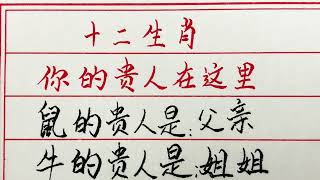 十二生肖
你的贵人在这里
鼠的贵人是:父亲
牛的贵人是:姐姐